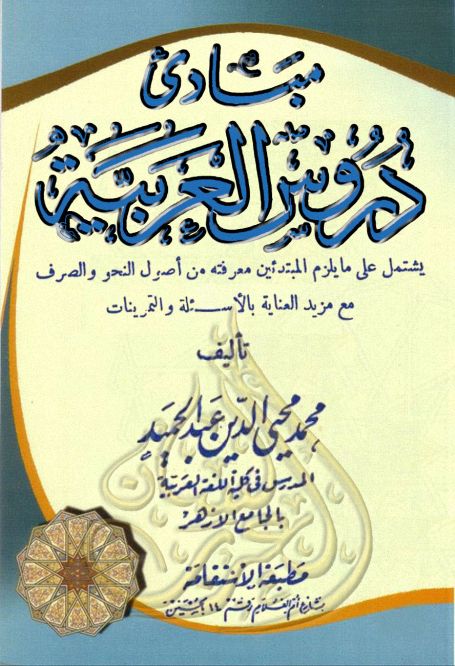 مبادئ
دروس العربية
يشتمل على ما يلزم المبتدئين معرفته من أصول النحو والصرف
مع مزيد العناية بالأسئلة والتمرينات
تأليف
محمد محيي الدين عبد الحميد
المدرس فى كلية اللغة العربية
بالجامع الأزهر
مطبعة الاستقامة
بشارع أم الغلام رقم ١٤